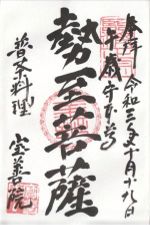 奉拝 令和三年十月十九日
午歳守本尊
勢至菩薩
普茶料理
宝善院